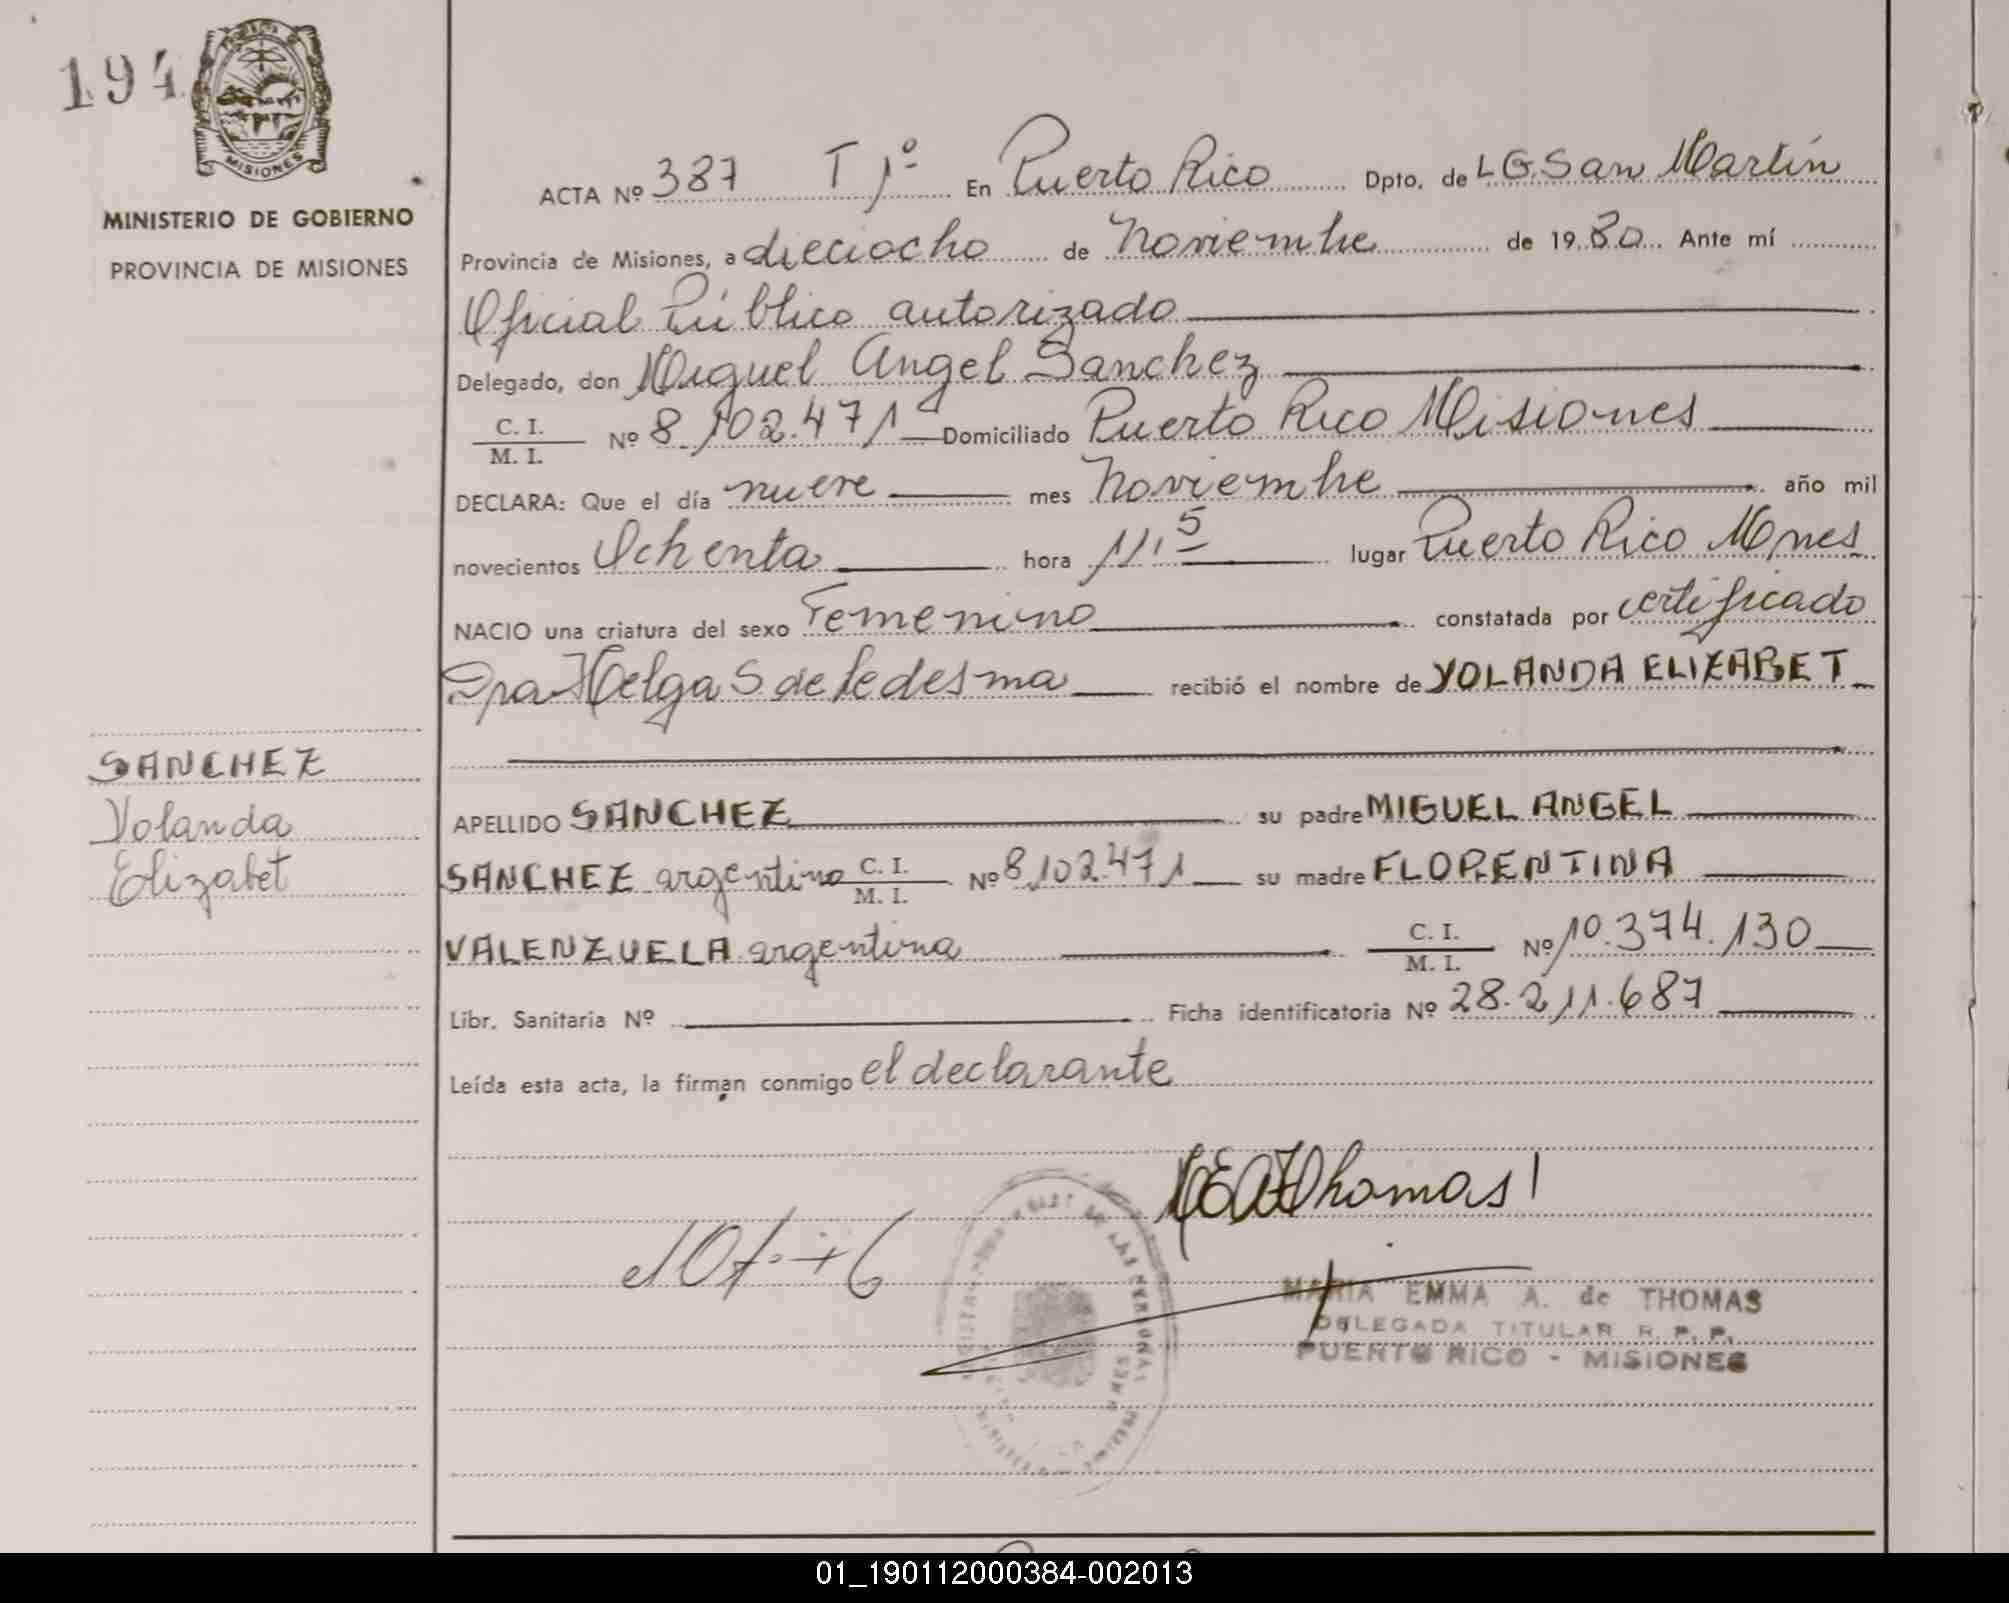 194
MISIONES
MINISTERIO DE GOBIERNO
PROVINCIA DE MISIONES
SANCHEZ
Yolanda
Elizabet
ACTA Nº 387 T 1º En Puerto Rico Dpto. de L G. San Martín
Provincia de Misiones, a dieciocho de Noviembre de 1980 Ante mí
Oficial Público autorizado
Delegado, don Miguel Angel Sanchez
C. I.
M. I. Nº 8.102.471 Domiciliado Puerto Rico Misiones
DECLARA: Que el día nueve mes Noviembre año mil
novecientos Ochenta hora 11,5 lugar Puerto Rico Mnes
NACIO una criatura del sexo Femenino constatada por certificado
Dra Helga S. de Ledesma recibió el nombre de YOLANDA ELIZABET
APELLIDO SANCHEZ su padre MIGUEL ANGEL
SANCHEZ argentino C. I. M. I. Nº 8.102.471 su madre FLORENTINA
VALENZUELA argentina C. I. M. I. Nº 10.374.130
Libr. Sanitaria Nº Ficha identificatoria Nº 28.211.687
Leída esta acta, la firman conmigo el declarante
Thomas
MARIA EMMA A. de THOMAS
DELEGADA TITULAR R. P. P.
PUERTO RICO - MISIONES
01_190112000384-002013